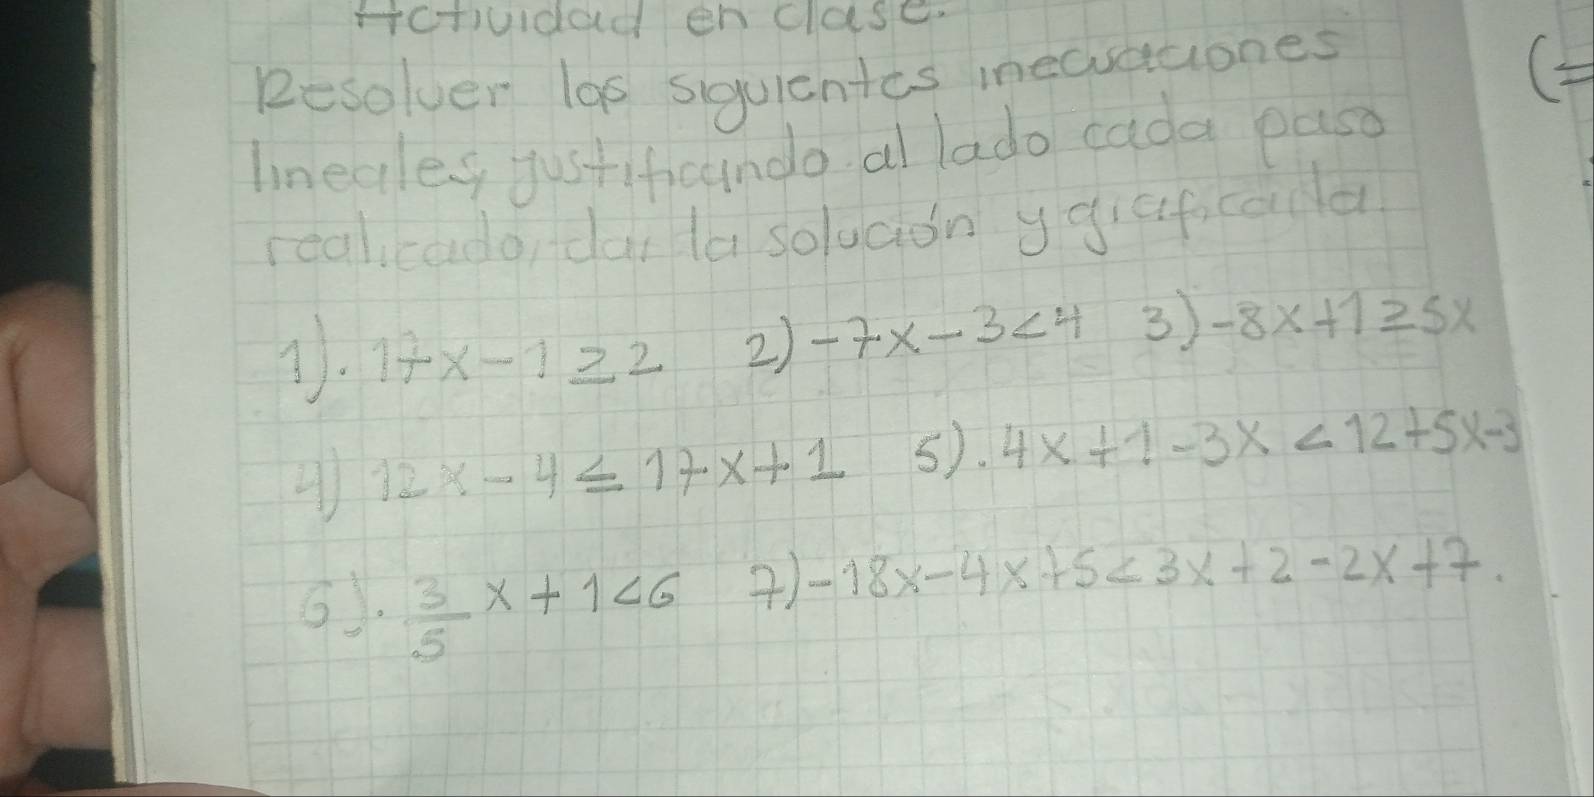 Actividad en clase.
Resolver las siguientes inecuaciones
lineales, justificando al lado cada paso
realicado, dar la solución y graficarla
1). 17x-1≥2 2) -7x-3<4 3) -8x+1≥5x
4) 12x-4≤17x+1 5). 4x+1-3x<12+5x-3
6). 3/5 x+1<6 7) -18x-4x+5<3x+2-2x+7.